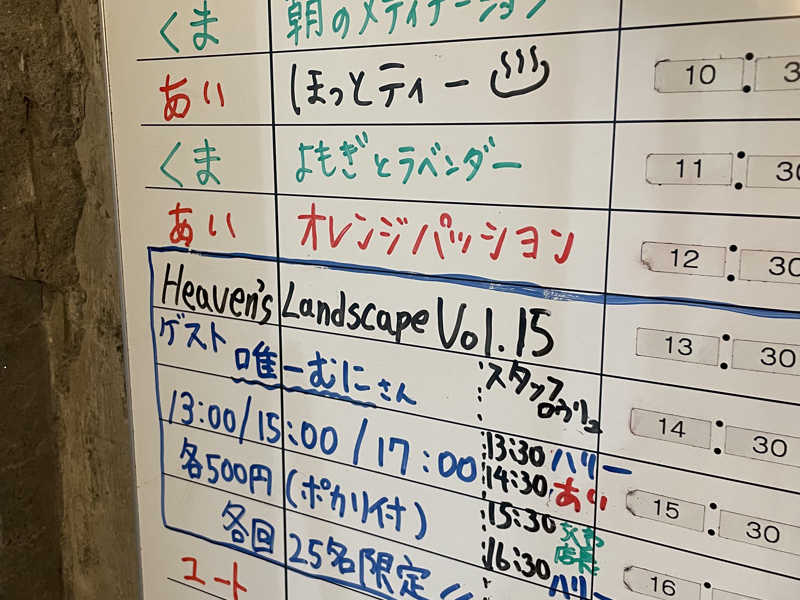 くま 朝のメディテーション
あい ほっとティー 10 : 3
くま よもぎとラベンダー 11 : 30
あい オレンジパッション 12 : 30
Heaven's Landscape Vol.15 13 : 30
ゲスト 唯一むにさん
スタッフ
ロウリュ
14 : 30
13:00/15:00/17:00
13:30 ハリー
各500円 (ポカリ付)
14:30 あい
15 : 30
15:30 店長
各回 25名限定
16:30 ハリー
16
ユート